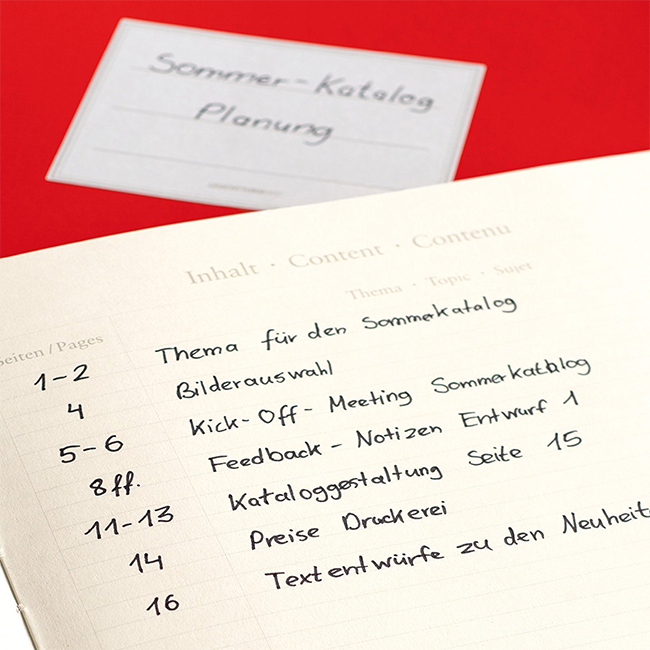 Sommer-Katalog
Planung
Inhalt · Content · Contenu
Thema · Topic · Sujet
Seiten / Pages
1-2 Thema für den Sommerkatalog
4 Bilderauswahl
5-6 Kick-Off-Meeting Sommerkatalog
8ff. Feedback-Notizen Entwurf 1
11-13 Kataloggestaltung Seite 15
14 Preise Druckerei
16 Textentwürfe zu den Neuheit